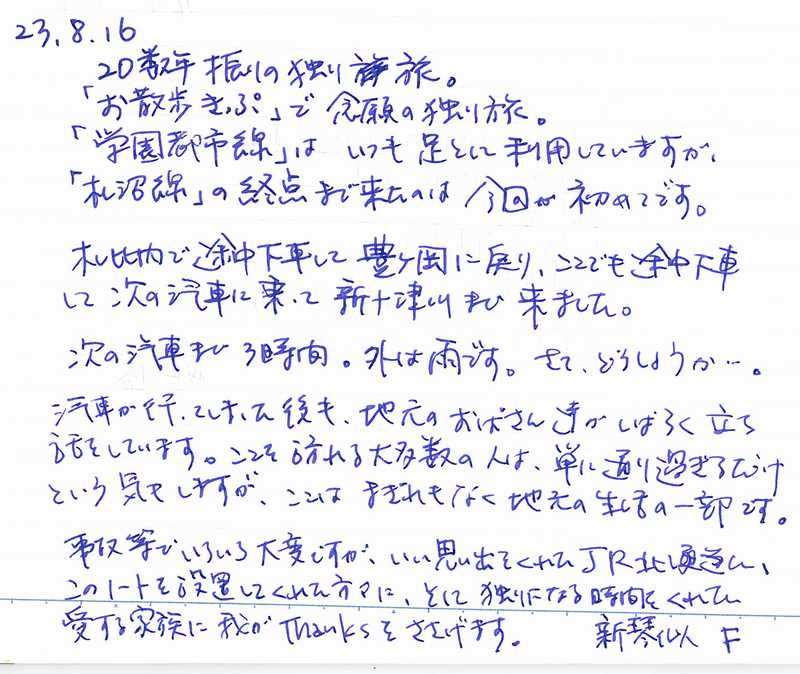 23.8.16
20数年振りの独り旅。
「お散歩きっぷ」で念願の独り旅。
「学園都市線」は いつも足として利用していますが、
「札沼線」の終点まで来たのは 今回が初めてです。
札比内で途中下車して 豊ヶ岡に戻り、ここでも途中下車
して 次の汽車に乗って 新十津川まで 来ました。
次の汽車まで 3時間。外は雨です。さて、どうしようか…。
汽車が行ってしまった後も、地元のおばさん達がしばらく立ち
話をしています。ここを訪れる大多数の人は、単に通り過ぎるだけ
という気もしますが、ここは まぎれもなく地元の生活の一部です。
事故等でいろいろ大変ですが、いい思い出をくれたJR北海道に、
このノートを設置してくれた方々に、そして 独りになる時間をくれた
愛する家族に 我がThanksをささげます。 新琴似人 F